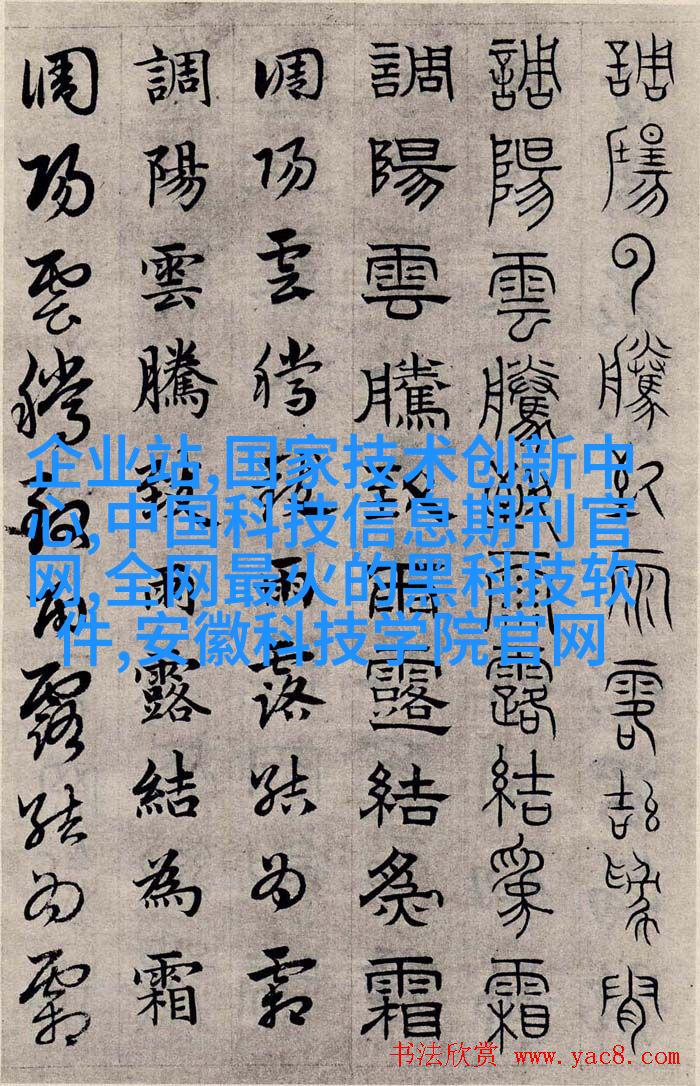 調陽雲騰致雨露結為霜
調陽雲騰致雨露結為霜
調陽雲騰致雨露結為霜
調陽雲騰致雨露結為霜
調陽雲騰致雨露結為霜
調陽雲騰致雨露結為霜
企业站,国家技术创新中
心,中国科技信息期刊官
网,全网最火的黑科技软
件,安徽科技学院官网
书法欣赏 www.yac8.com